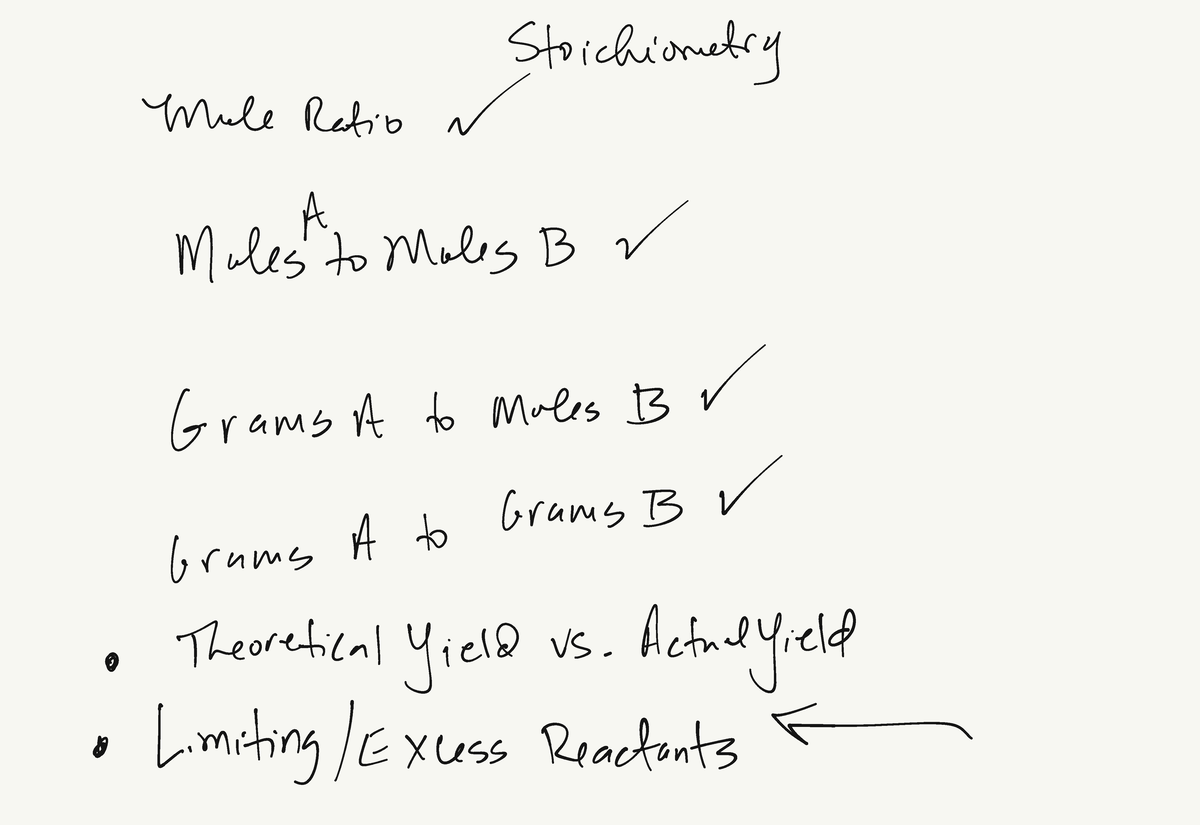 Stoichiometry
Mole Ratio ✓
Moles A to Moles B ✓
Grams A to Moles B ✓
Grams A to Grams B ✓
• Theoretical Yield vs. Actual Yield
• Limiting/Excess Reactants ←